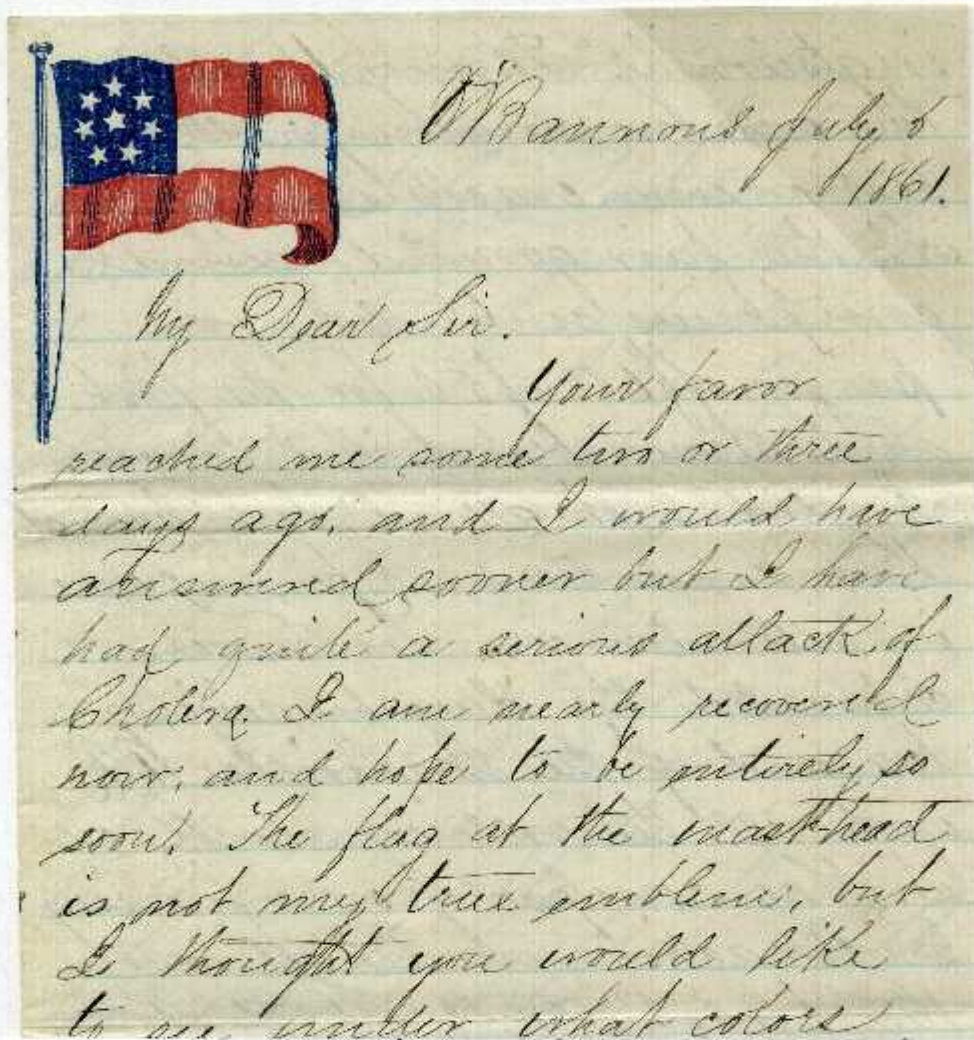 O'Bannons July 5
1861.
My Dear Sir.
Your favor
reached me some two or three
days ago. and I would have
answered sooner but I have
had quite a serious attack of
Cholera. I am nearly recovered
now, and hope to be entirely so
soon. The flag at the mast-head
is not my true emblem, but
I thought you would like
to see under what colors